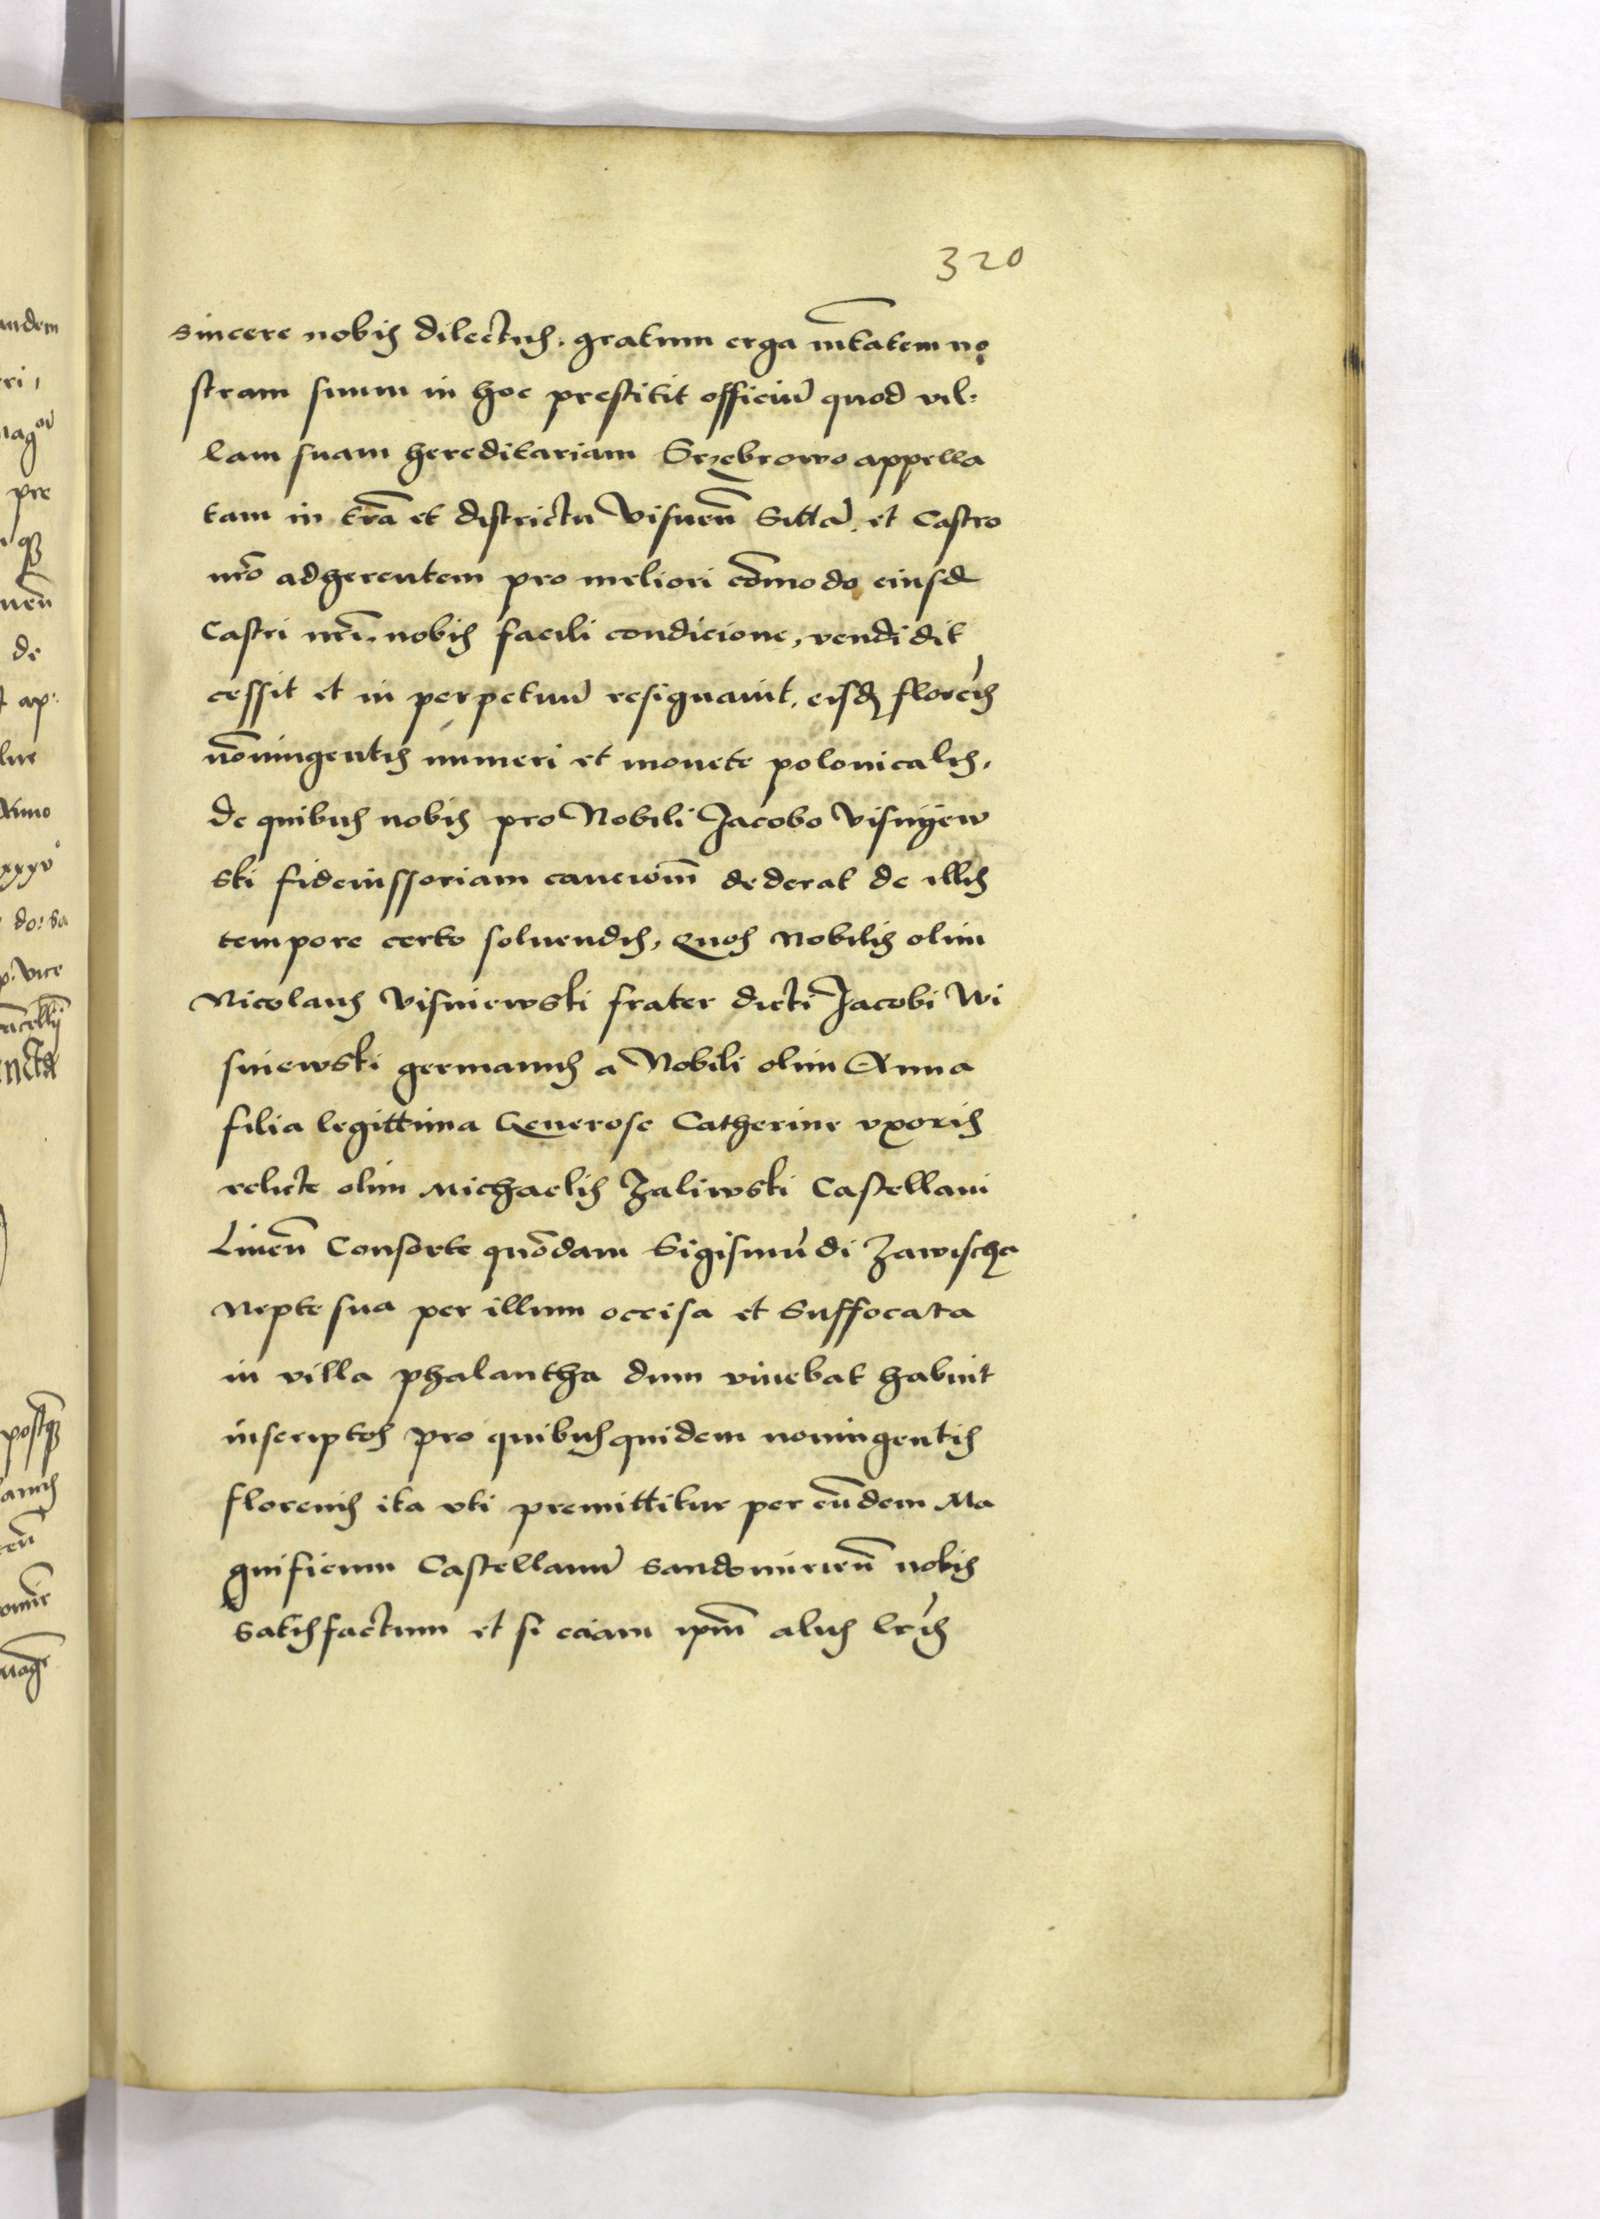 320
sincere nobis dilectus. gratum erga mtatem no
stram suum in hoc prestitit officiu quod vil-
lam suam hereditariam Srzebrowo appella
tam in tra et districtu Visnen Sitta. et Castro
nro adherentem pro meliori comodo eiusd
Castri nri. nobis facili condicione, vendidit
cessit et in perpetuu resignauit. eisd floreis
noningentis numeri et monete polonicalis.
de quibus nobis pro Nobili Jacobo Visnyew
ski fideiussoriam caucionm dederat de illis
tempore certo soluendis, Quos Nobilis olim
Nicolaus Visniewski frater dicti Jacobi Wi
sniewski germanus a Nobili olim Anna
filia legittima Generose Catherine vxoris
relicte olim Michaelis Zaliwski Castellani
Liuen Consorte quodam Sigismudi Zawischa
Nepte sua per illum occisa et Suffocata
in villa phalantha dum viuebat habuit
inscriptos pro quibus quidem noningentis
florenis ita vti premittitur per eudem Ma
gnificum Castellanu Sandomirien nobis
Satisfactum et si eciam ipm alijs lris